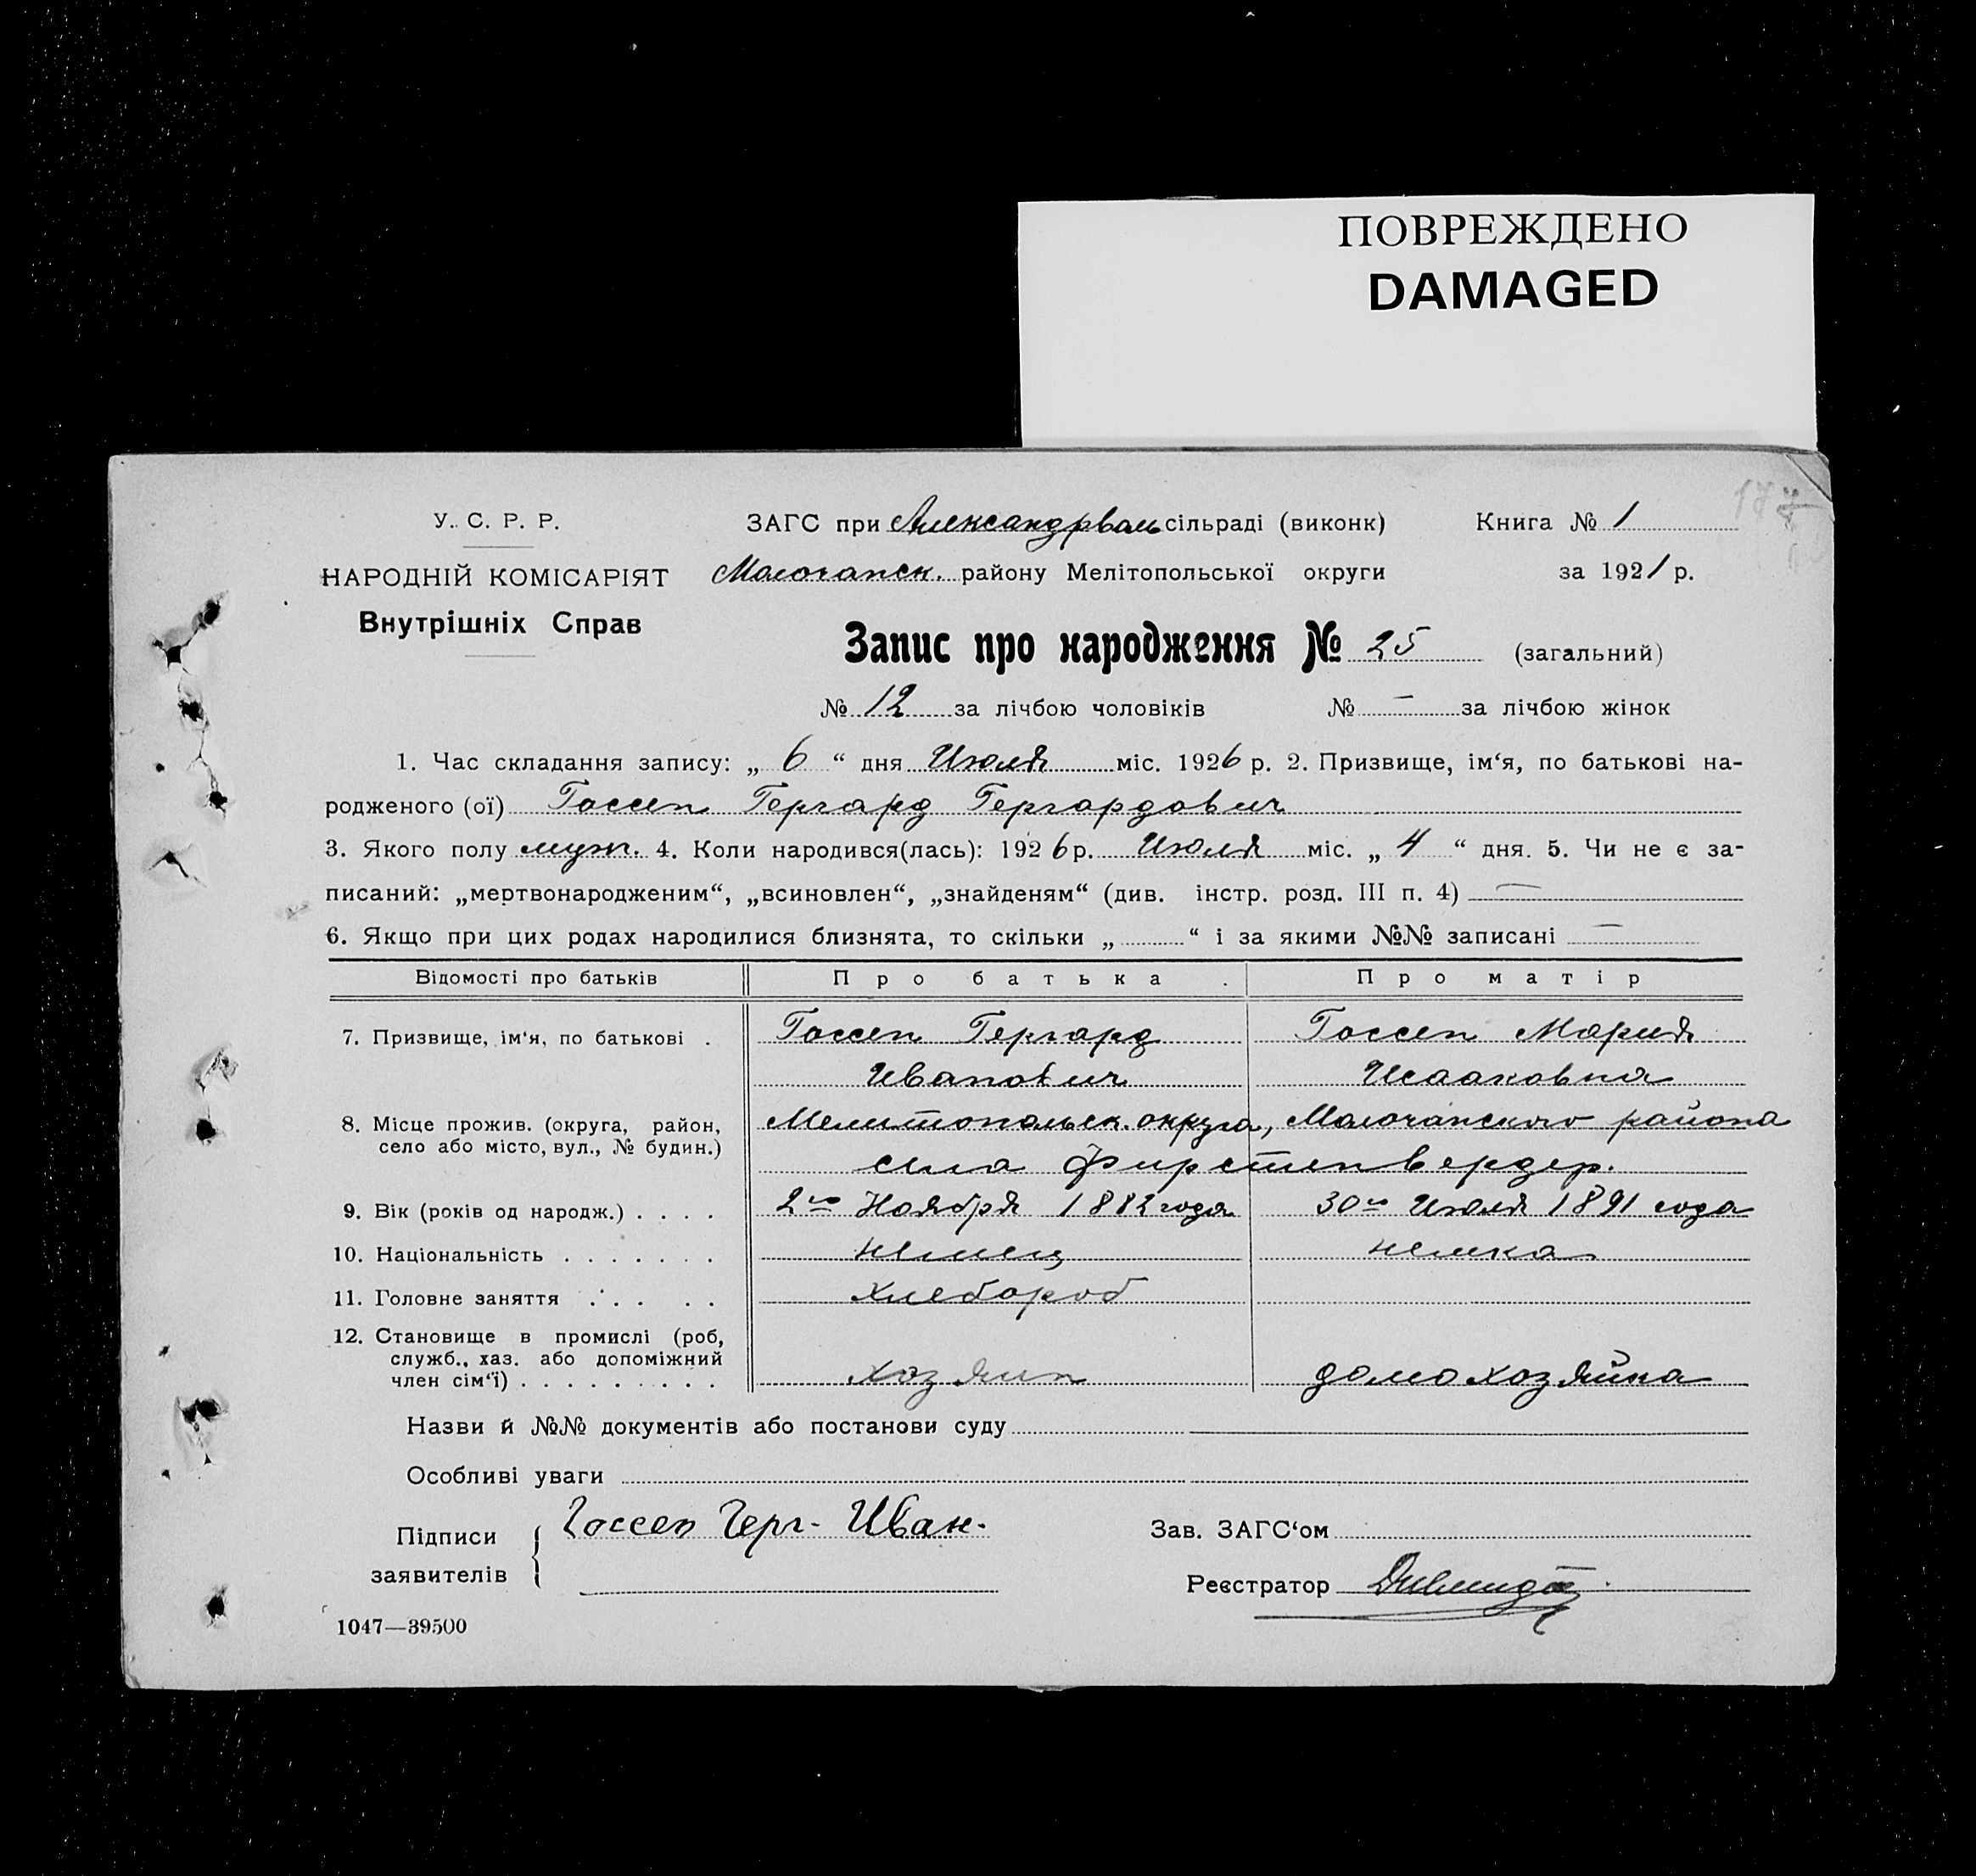 ПОВРЕЖДЕНО
DAMAGED
У. С. Р. Р.
НАРОДНІЙ КОМІСАРІЯТ
Внутрішніх Справ
ЗАГС при Александрваль сільраді (виконк)
Молочанск. району Мелітопольської округи
Книга № 1
за 1921 р.
177
Запис про народження № 25 (загальний)
№ 12 за лічбою чоловіків № — за лічбою жінок
1. Час складання запису: „ 6 “ дня Июля міс. 1926 р. 2. Призвище, ім‘я, по батькові на-
родженого (ої) Госсен Гергард Гергардович
3. Якого полу муж. 4. Коли народився(лась): 1926 р. Июля міс. „ 4 “ дня. 5. Чи не є за-
писаний: „мертвонародженим“, „всиновлен“, „знайденям“ (див. інстр. розд. III п. 4) —
6. Якщо при цих родах народилися близнята, то скільки „ “ і за якими №№ записані —
Відомості про батьків Про батька Про матір
7. Призвище, ім‘я, по батькові . Госсен Гергард Госсен Мария
Иванович Исааковна
8. Місце прожив. (округа, район, Мелитопольск. округа, Молочанского района
село або місто, вул., № будин.) села Фирстенвердер.
9. Вік (років од народж.) . . . . 2го Ноября 1882 года 30го Июля 1891 года
10. Національність . . . . . . . немец немка
11. Головне заняття . . . . . хлебороб
12. Становище в промислі (роб,
служб., хаз. або допоміжний
член сім‘ї) . . . . . . . . . хозяин домохозяйка
Назви й №№ документів або постанови суду
Особливі уваги
Підписи
заявителів
Госсен Герг. Иван.
Зав. ЗАГС‘ом
Реєстратор
1047—39500